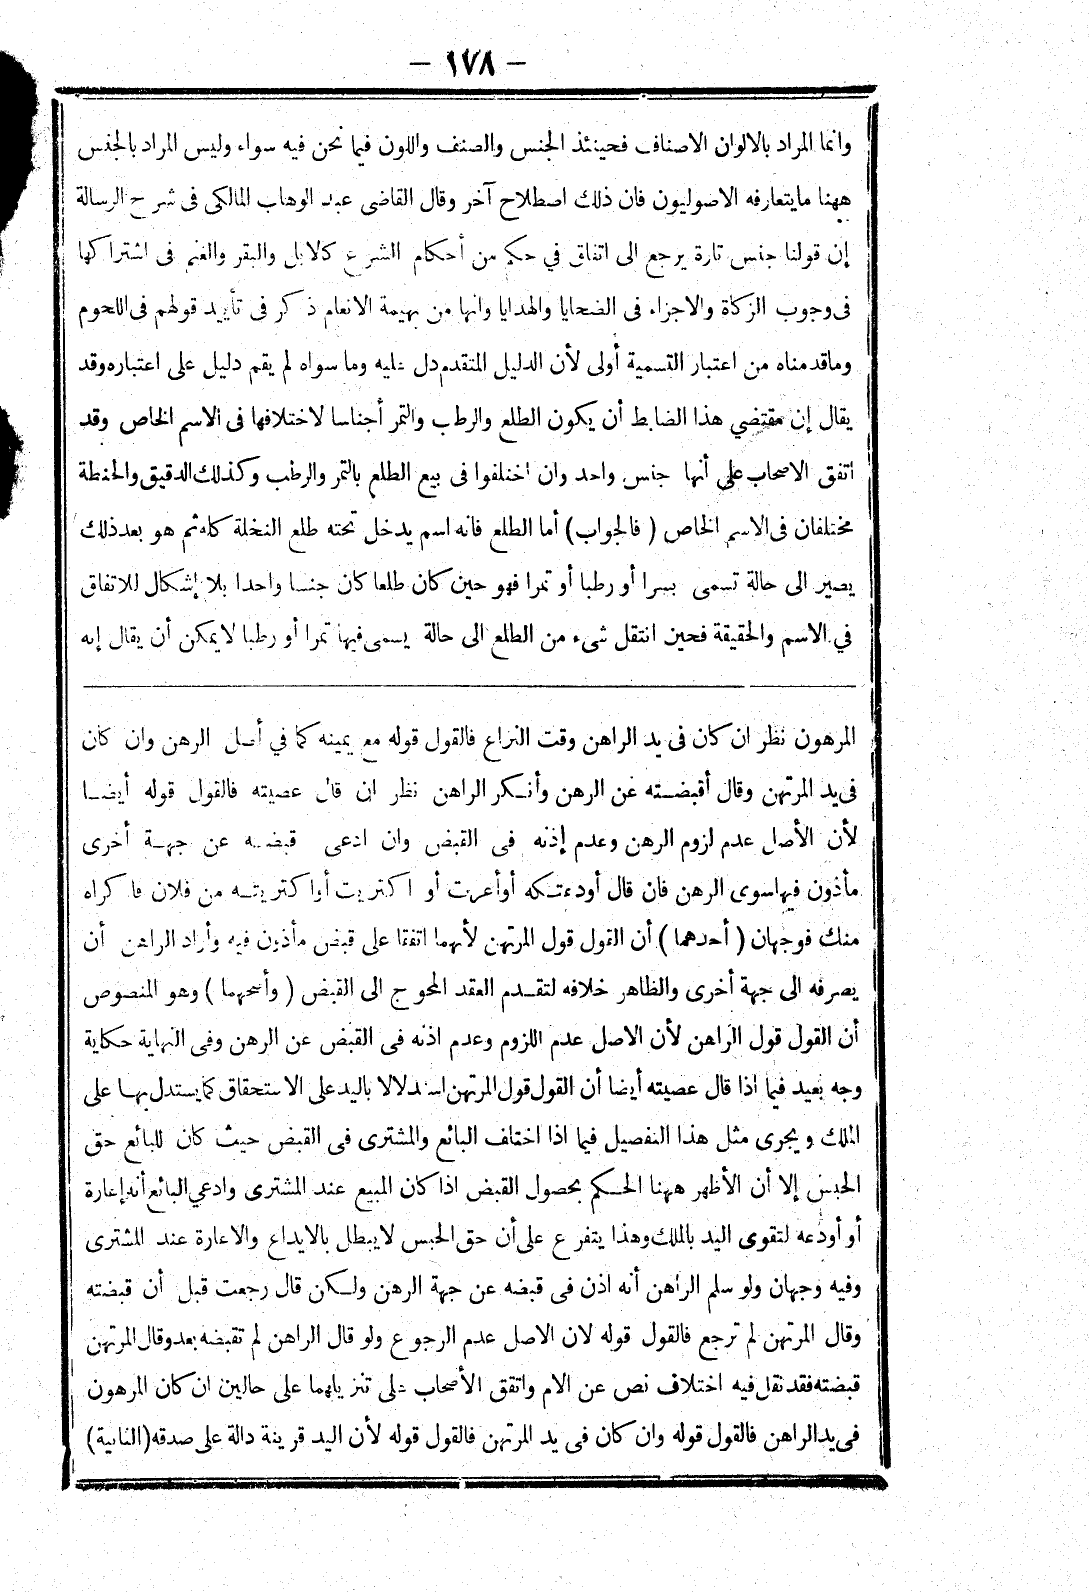 - ١٧٨ -
وانما المراد بالالوان الاصناف فحينئذ الجنس والصنف واللون فيما نحن فيه سواء وليس المراد بالجنس
ههنا مايتعارفه الاصوليون فان ذلك اصطلاح آخر وقال القاضى عبد الوهاب المالكى فى شرح الرسالة
إن قولنا جنس تارة يرجع الى اتفاق في حكم من أحكام الشرع كالابل والبقر والغنم فى اشتراكها
فى وجوب الزكاة والاجزاء فى الضحايا والهدايا وانها من بهيمة الانعام ذكر فى تأييد قولهم فى اللحوم
وماقدمناه من اعتبار التسمية أولى لأن الدليل المتقدم دل عليه وما سواه لم يقم دليل على اعتباره وقد
يقال إن مقتضي هذا الضابط أن يكون الطلع والرطب والتمر أجناسا لاختلافها فى الاسم الخاص وقد
اتفق الاصحاب علي أنها جنس واحد وان اختلفوا فى بيع الطلع بالتمر والرطب وكذلك الدقيق والحنطة
مختلفان فى الاسم الخاص (فالجواب) أما الطلع فانه اسم يدخل تحته طلع النخلة كله ثم هو بعد ذلك
يصير الى حالة تسمى بسرا أو رطبا أو تمرا فهو حين كان طلعا كان جنسا واحدا بلا إشكال للاتفاق
في الاسم والحقيقة فحين انتقل شىء من الطلع الى حالة يسمى فيها تمرا أو رطبا لايمكن أن يقال إنه
المرهون نظر ان كان فى يد الراهن وقت النزاع فالقول قوله مع يمينه كما في أصل الرهن وان كان
فى يد المرتهن وقال أقبضته عن الرهن وأنكر الراهن نظر ان قال غصبته فالقول قوله أيضا
لأن الأصل عدم لزوم الرهن وعدم إذنه فى القبض وان ادعى قبضه عن جهة أخرى
مأذون فيها سوى الرهن فان قال أودعتكه أو أعرت أو اكتريت أو اكتريته من فلان فاكراه
منك فوجهان (أحدهما) أن القول قول المرتهن لأنهما اتفقا على قبض مأذون فيه وأراد الراهن أن
يصرفه الى جهة أخرى والظاهر خلافه لتقدم العقد المحوج الى القبض (وأصحهما) وهو المنصوص
أن القول قول الراهن لأن الاصل عدم اللزوم وعدم اذنه فى القبض عن الرهن وفى النهاية حكاية
وجه بعيد فيما اذا قال غصبته أيضا أن القول قول المرتهن استدلالا باليد على الاستحقاق كما يستدل بها على
الملك ويجرى مثل هذا التفصيل فيما اذا اختلف البائع والمشترى فى القبض حيث كان للبائع حق
الحبس إلا أن الأظهر ههنا الحكم بحصول القبض اذا كان المبيع عند المشترى وادعي البائع أنه إعارة
أو أودعه لتقوى اليد بالملك وهذا يتفرع على أن حق الحبس لايبطل بالايداع والاعارة عند المشترى
وفيه وجهان ولو سلم الراهن أنه اذن فى قبضه عن جهة الرهن ولكن قال رجعت قبل أن قبضته
وقال المرتهن لم ترجع فالقول قوله لان الاصل عدم الرجوع ولو قال الراهن لم تقبضه بعد وقال المرتهن
قبضته فقد نقل فيه اختلاف نص عن الام واتفق الأصحاب على تنزيلهما على حالين ان كان المرهون
فى يد الراهن فالقول قوله وان كان فى يد المرتهن فالقول قوله لأن اليد قرينة دالة على صدقه (الثانية)